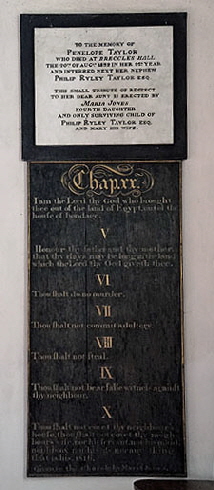 TO THE MEMORY OF
PENELOPE TAYLOR
WHO DIED AT BRECCLES HALL
AND INTERRED NEXT HER NEPHEW
PHILIP RYLEY TAYLOR ESQ.
THIS SMALL TRIBUTE OF RESPECT
TO HER DEAR AUNT IS ERECTED BY
MARIA JONES
FOURTH DAUGHTER
AND ONLY SURVIVING CHILD OF
PHILIP RYLEY TAYLOR ESQ.
AND MARY HIS WIFE.
Chap: xx.
I am the Lord thy God who brought
thee out of the land of Egypt, out of the
house of Bondage.
V
Honour thy father and thy mother,
that thy days may be long in the land,
which the Lord thy God giveth thee.
VI
Thou shalt do no murder.
VII
Thou shalt not commit adultery.
VIII
Thou shalt not steal.
IX
Thou shalt not bear false witness against
thy neighbour.
X
Thou shalt not covet thy neighbour's
house, thou shalt not covet thy neigh-